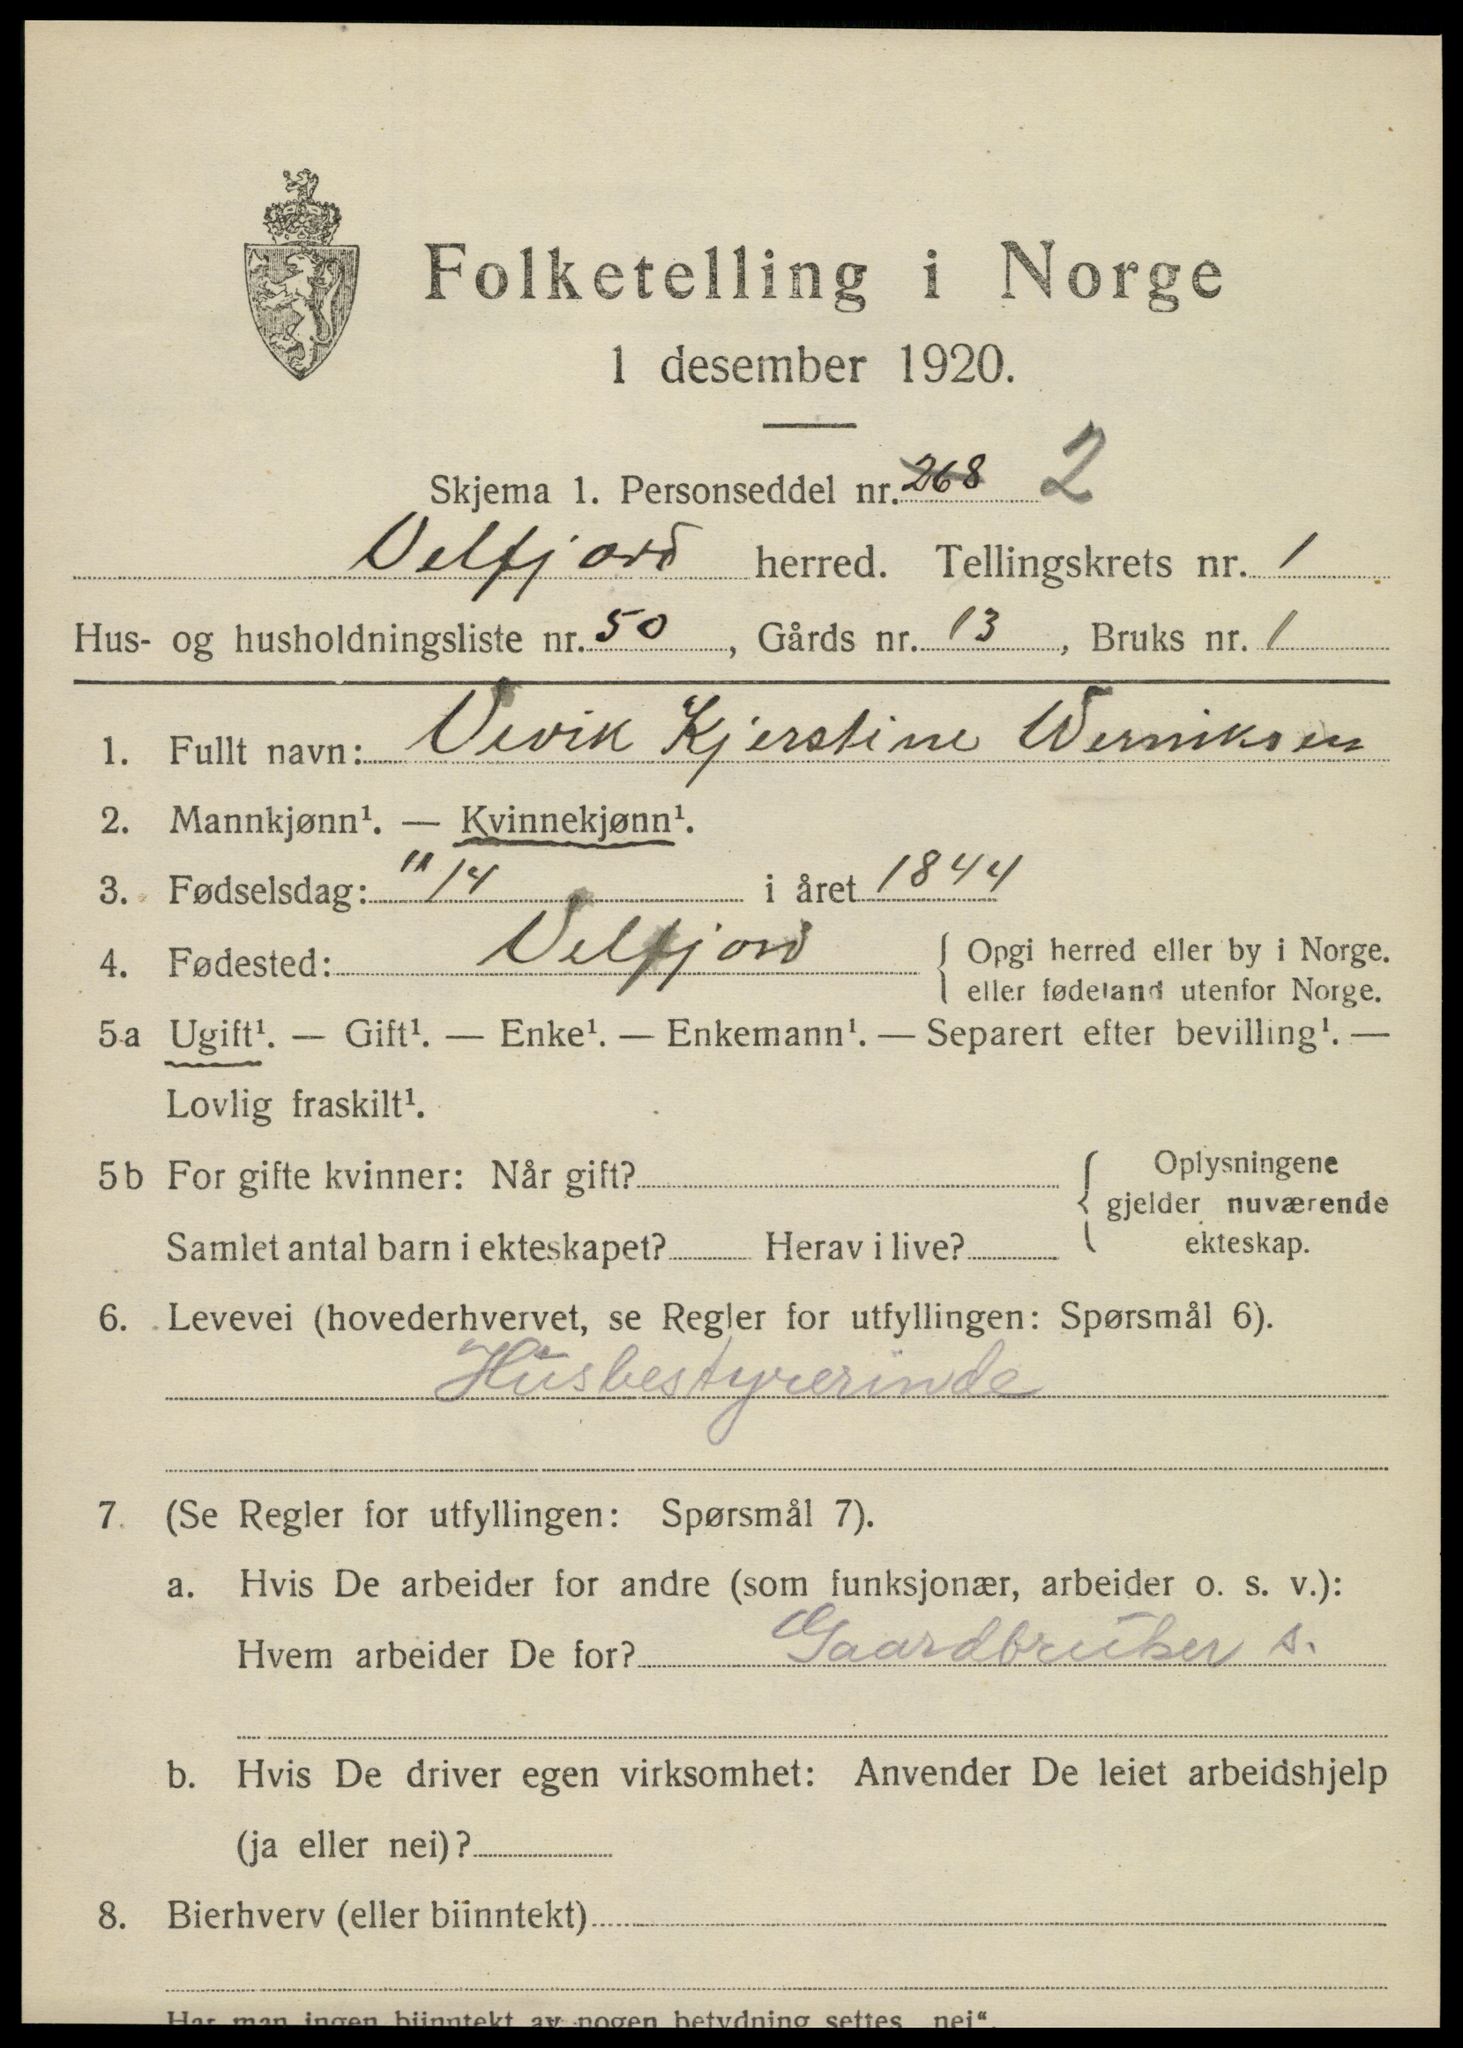 Folketelling i Norge
1 desember 1920.
Skjema 1. Personseddel nr. 268 2
Velfjord herred. Tellingskrets nr. 1
Hus- og husholdningsliste nr. 50, Gårds nr. 13, Bruks nr. 1
1. Fullt navn: Vevik Kjerstine Werniksen
2. Mannkjønn¹. — Kvinnekjønn¹.
3. Fødselsdag: 11/4 i året 1844
4. Fødested: Velfjord { Opgi herred eller by i Norge.
eller fødeland utenfor Norge.
5a Ugift¹. — Gift¹. — Enke¹. — Enkemann¹. — Separert efter bevilling¹. —
Lovlig fraskilt¹.
5b For gifte kvinner: Når gift? { Oplysningene
gjelder nuværende
Samlet antal barn i ekteskapet? Herav i live? ekteskap.
6. Levevei (hovederhvervet, se Regler for utfyllingen: Spørsmål 6).
Husbestyrerinde
7. (Se Regler for utfyllingen: Spørsmål 7).
a. Hvis De arbeider for andre (som funksjonær, arbeider o. s. v.):
Hvem arbeider De for? Gaardbruker s.
b. Hvis De driver egen virksomhet: Anvender De leiet arbeidshjelp
(ja eller nei)?
8. Bierhverv (eller biinntekt)
Har man ingen biinntekt av nogen betydning settes „nei“.